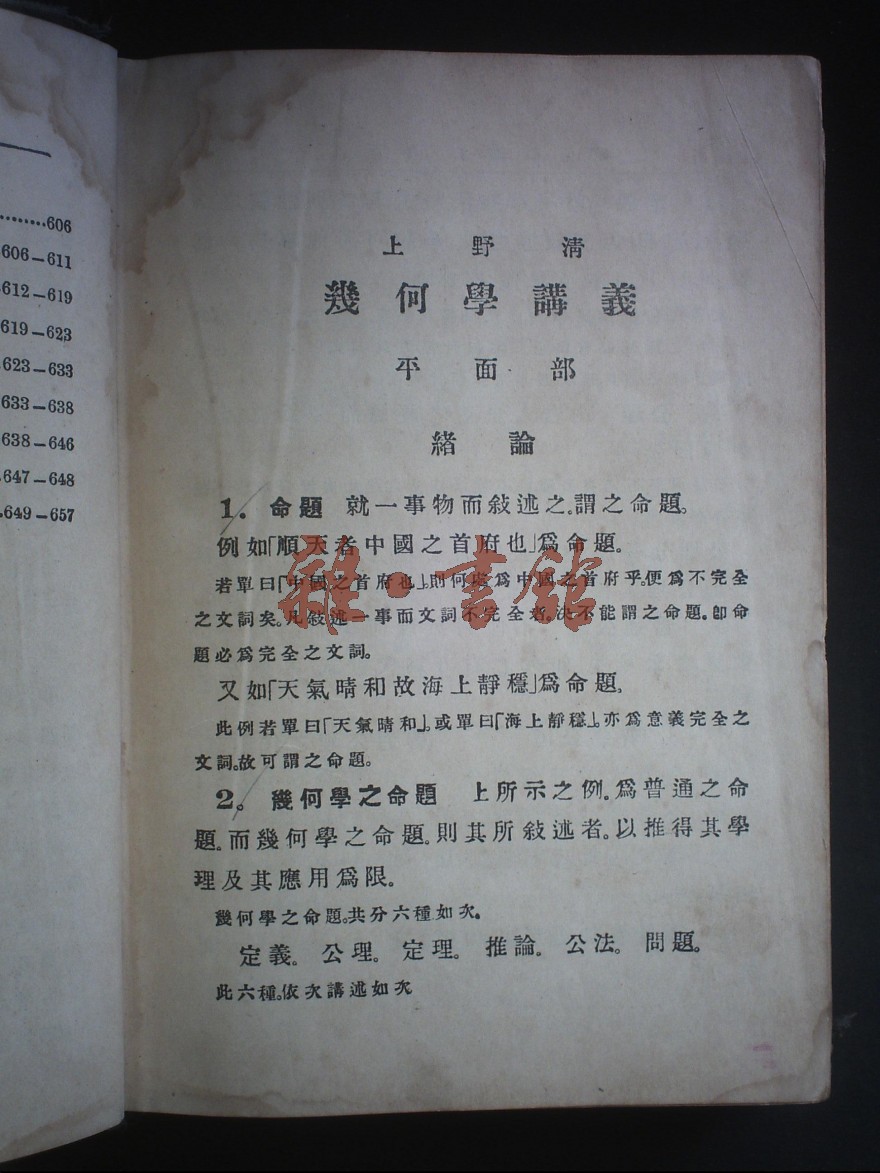 .........606
606–611
.612–619
619–623
.623–633
.633–638
638–646
.647–648
.649–657
上野清
幾何學講義
平面部
緒論
1。命題 就一事物而敍述之。謂之命題。
例如「順天者中國之首府也」爲命題。
若單曰「中國之首府也」。則何處爲中國之首府乎。便爲不完全
之文詞矣。凡敍述一事而文詞不完全者。決不能謂之命題。卽命
題必爲完全之文詞。
又如「天氣晴和故海上靜穩」爲命題。
此例若單曰「天氣晴和」。或單曰「海上靜穩」。亦爲意義完全之
文詞。故可謂之命題。
2。幾何學之命題 上所示之例。爲普通之命
題。而幾何學之命題。則其所敍述者。以推得其學
理及其應用爲限。
幾何學之命題。共分六種如次。
定義。公理。定理。推論。公法。問題。
此六種。依次講述如次
雜·書館